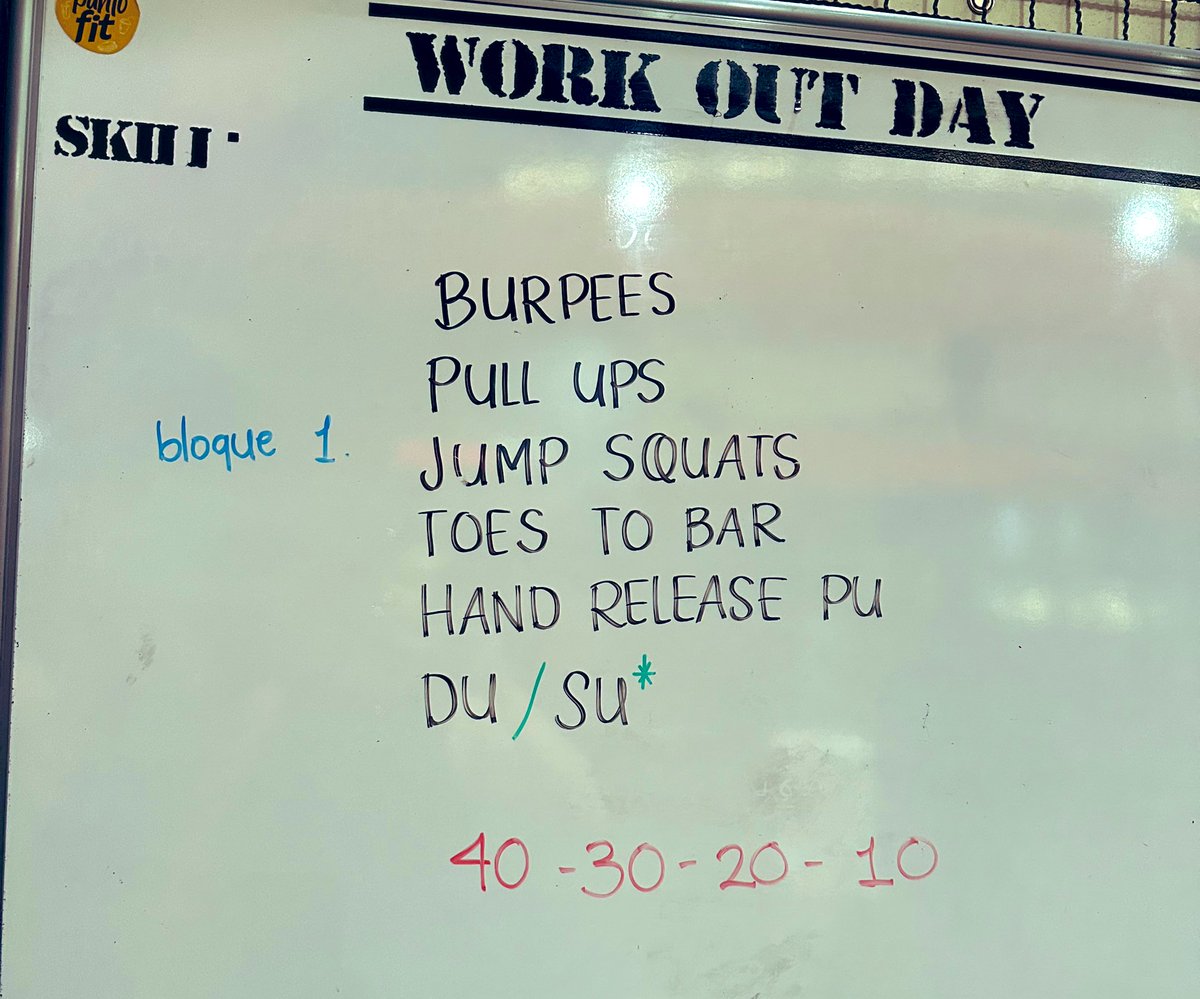 fit
WORK OUT DAY
BURPEES
PULL UPS
bloque 1.
JUMP SQUATS
TOES TO BAR
HAND RELEASE PU
DU/SU*
40-30-20-10